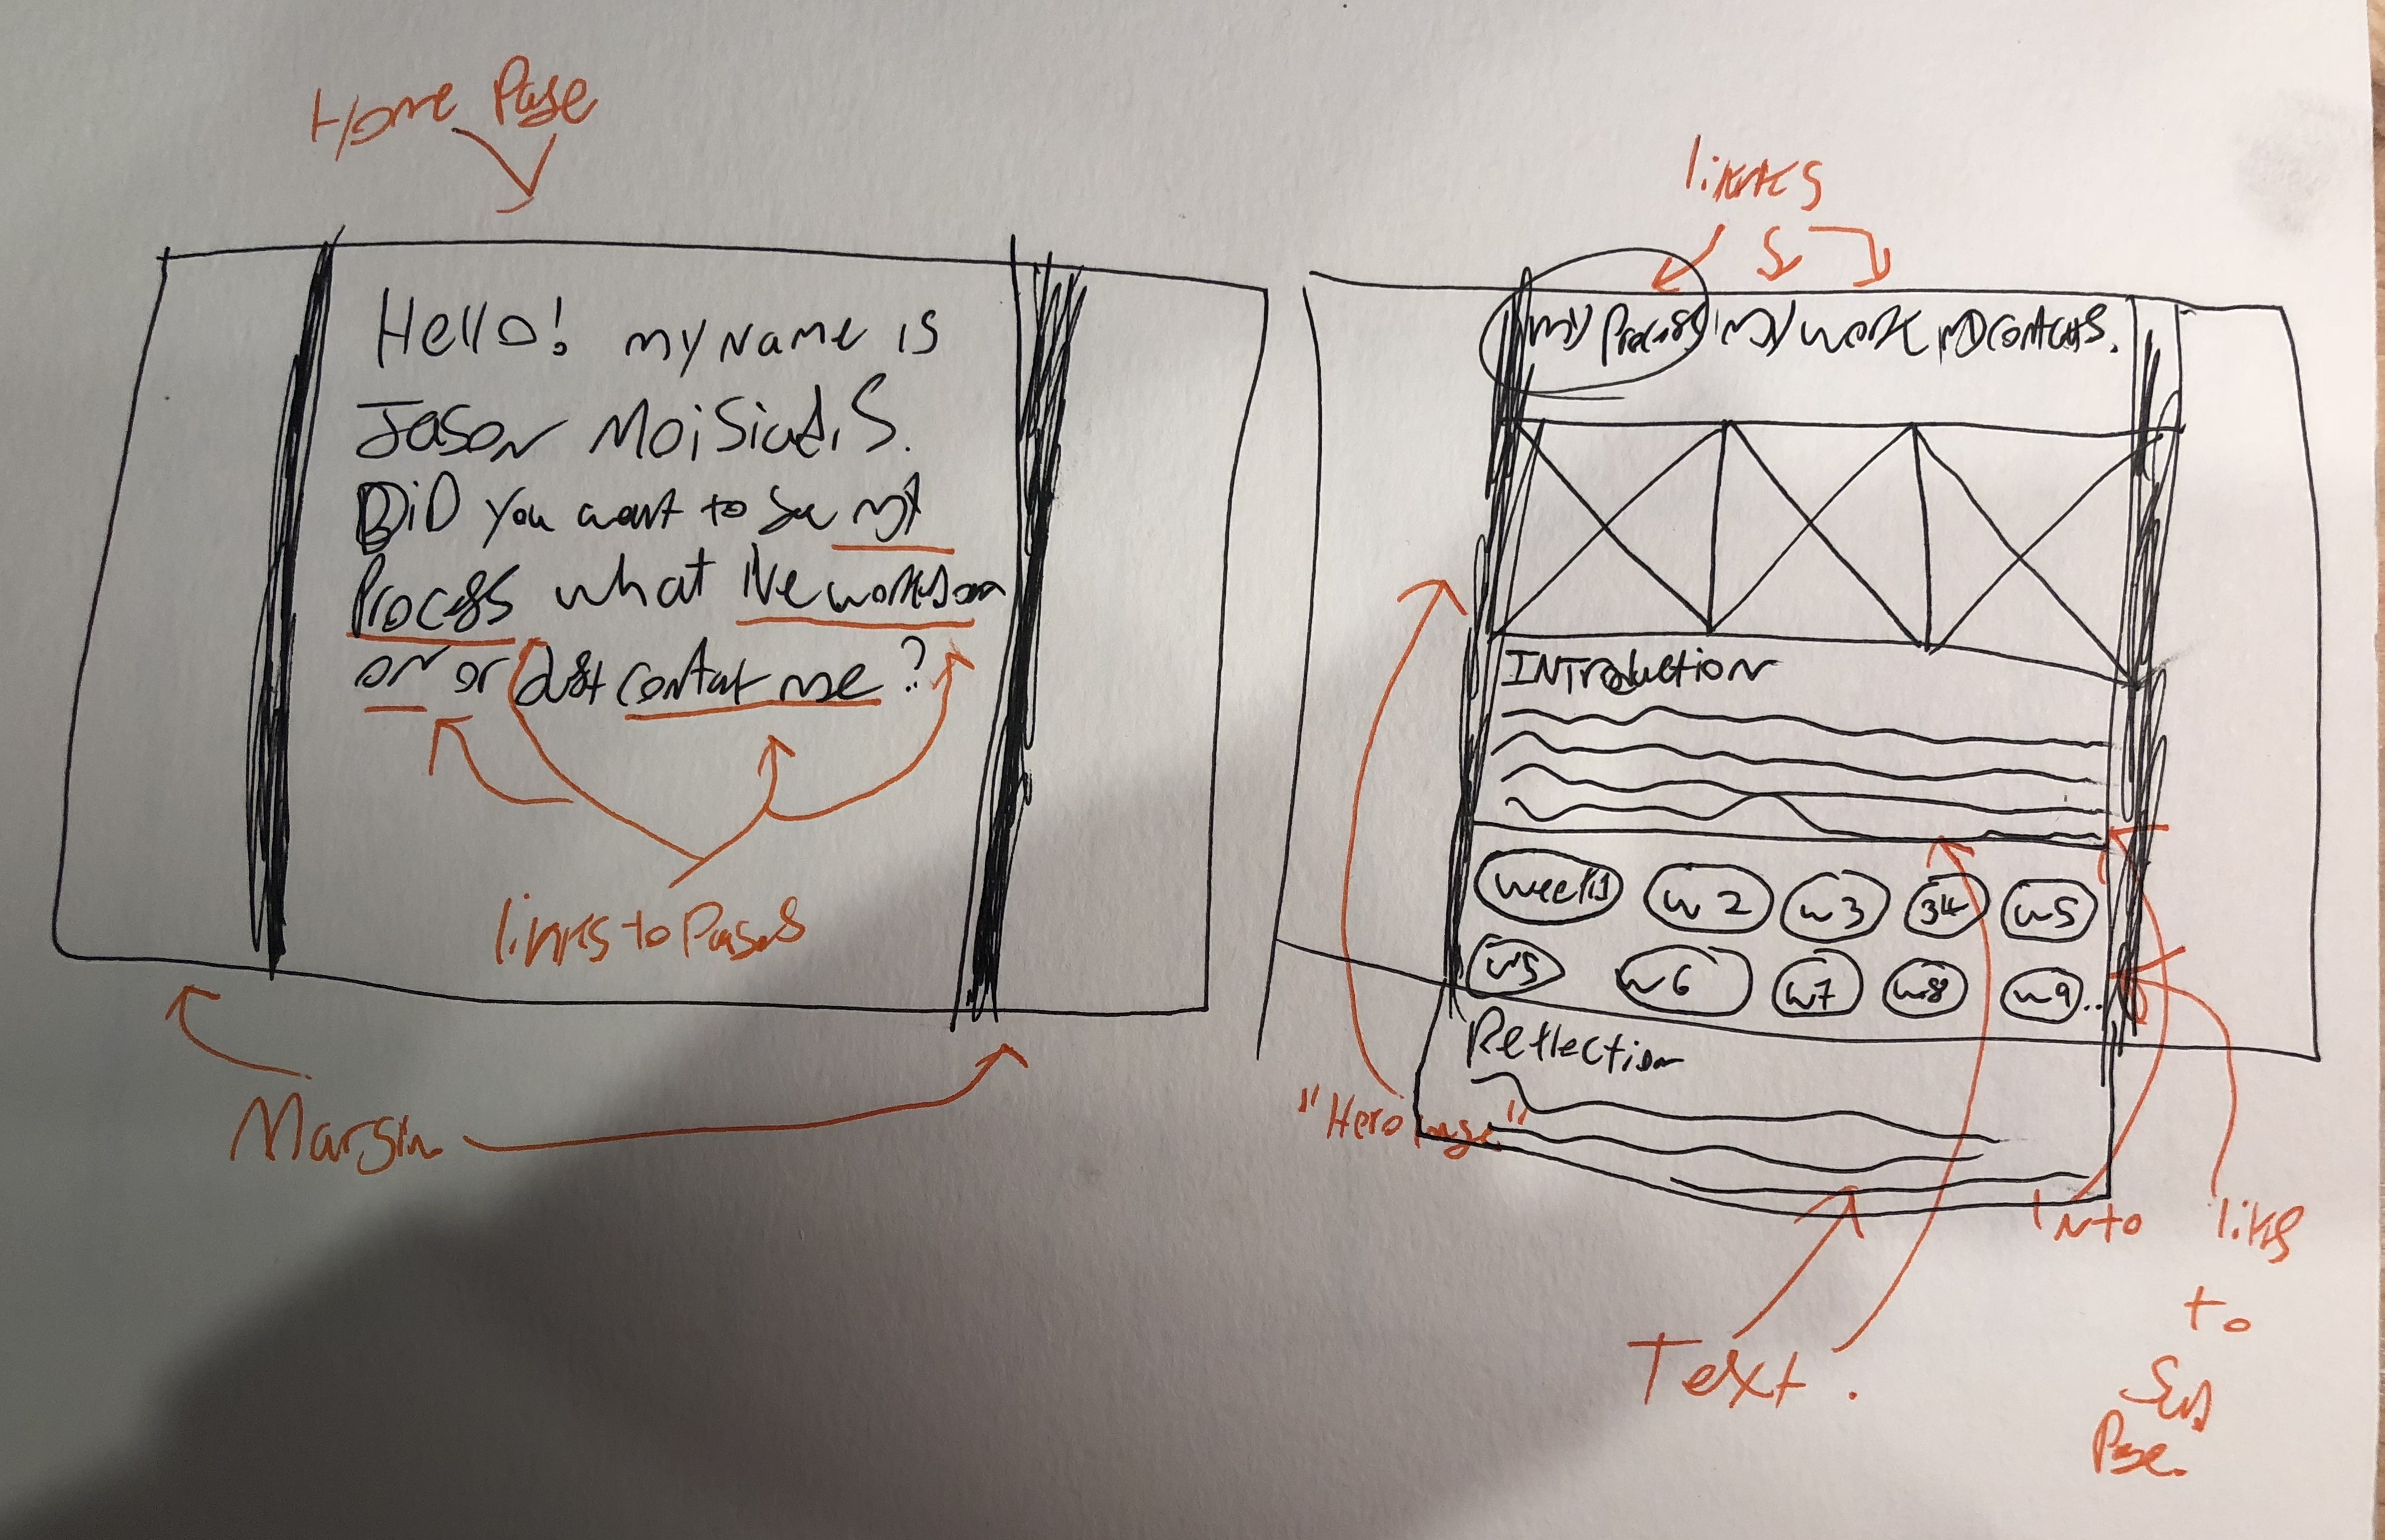 Home Page
Hello! my name is
Jason Moisiadis.
Did you want to see my
Process what I've worked on
or just contact me?
links to Pages
Margin
links
my Process my work my contacts.
Introduction
week1 w2 w3 w5
w5 w6 w7 w8 w9..
Reflection
"Hero Image"
Text.
into
links
to
Sub
Page.